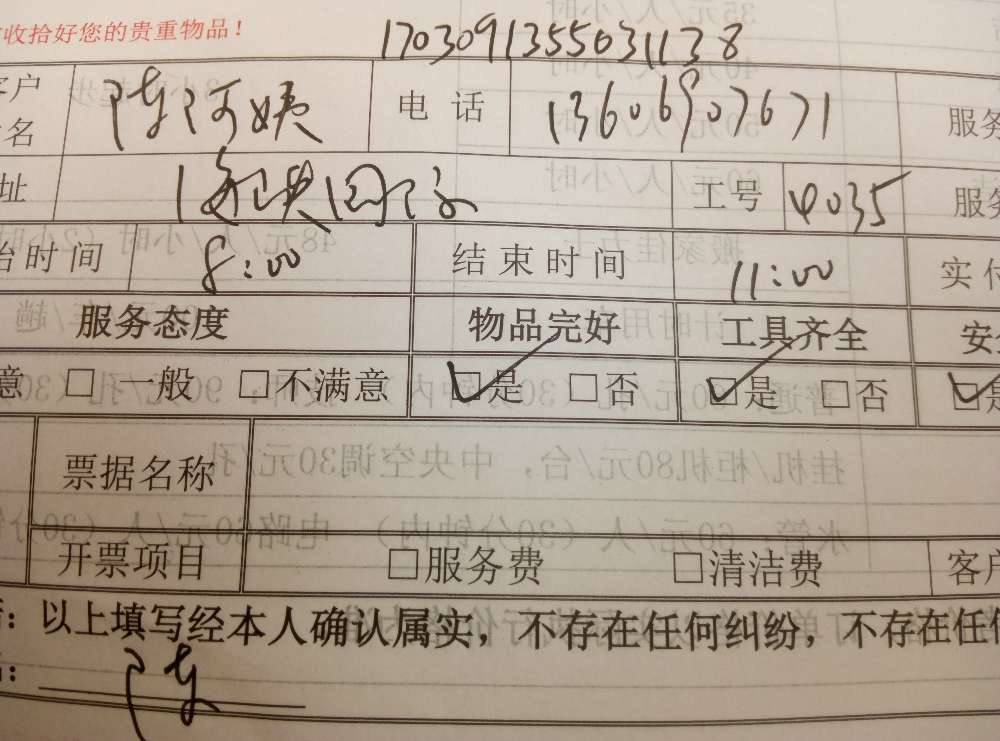 收拾好您的贵重物品！
1703091355031138
客户 陈阿姨 电话 13606907671 服务
名
址 工号 4035 服务
始时间 8:00 结束时间 11:00 实付
服务态度 物品完好 工具齐全 安全
意 □ 一般 □不满意 ☑是 □否 ☑是 □否 ☑是
票据名称
开票项目 □服务费 □清洁费 客户
：以上填写经本人确认属实，不存在任何纠纷，不存在任何
： 陈